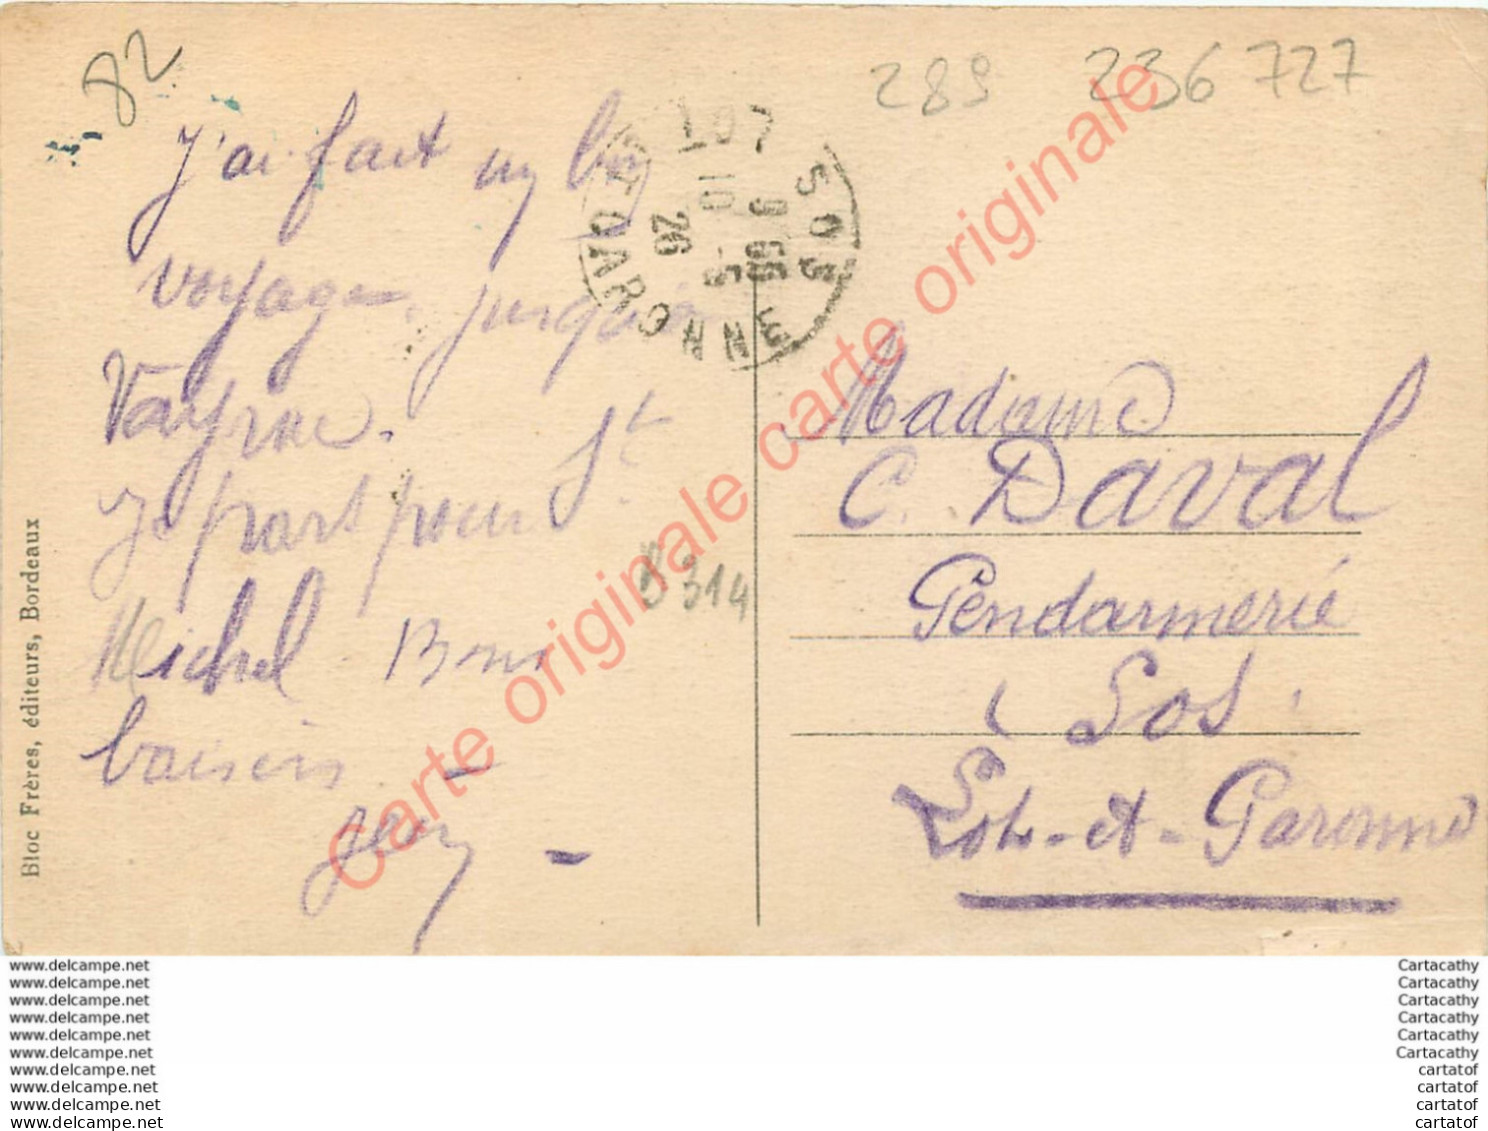 82
289 236 727
J'ai fait un bon
voyage. jusqu'à
Vayrac.
Je part pour St
Michel Bons
baisers -
Jean -
SOS
LOT ET GARONNE
9 55
10 -5
26
B 314
Madame
C. Daval
Gendarmerie
Sos.
Lot-et-Garonne
Bloc Frères, éditeurs, Bordeaux
Carte originale carte originale
www.delcampe.net
www.delcampe.net
www.delcampe.net
www.delcampe.net
www.delcampe.net
www.delcampe.net
www.delcampe.net
www.delcampe.net
www.delcampe.net
www.delcampe.net
Cartacathy
Cartacathy
Cartacathy
Cartacathy
Cartacathy
Cartacathy
cartatof
cartatof
cartatof
cartatof